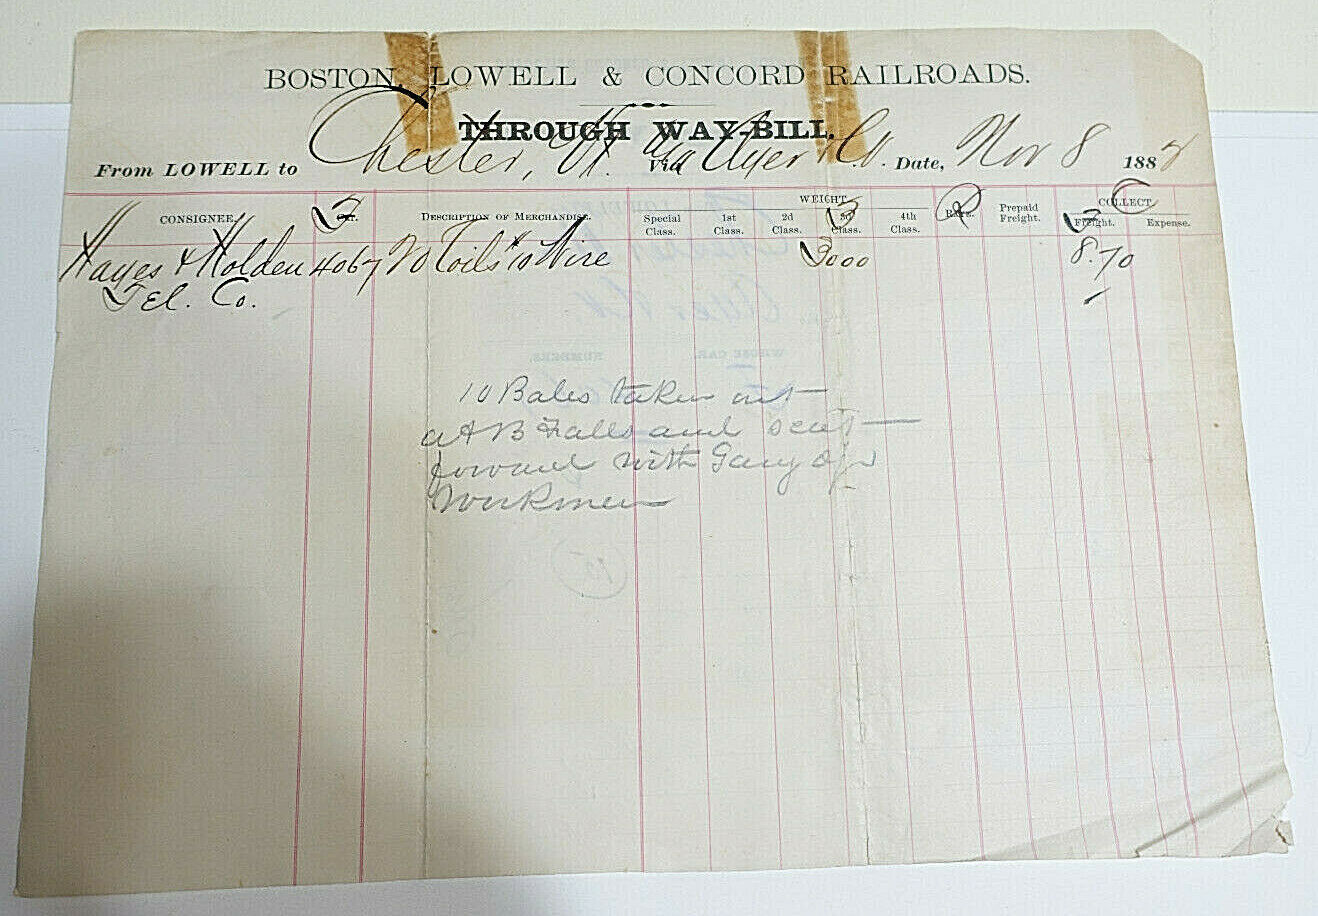 BOSTON, LOWELL & CONCORD RAILROADS.
THROUGH WAY-BILL.
From LOWELL to Chester, Vt. Via Ayer & Co. Date, Nov 8 188
CONSIGNEE. Car. DESCRIPTION OF MERCHANDISE. WEIGHT. Rate. Prepaid Freight. COLLECT.
Special Class. 1st Class. 2d Class. 3d Class. 4th Class. Freight. Expense.
Hayes & Holden 4067 20 Coils Wire 3000 8.70
Tel. Co.
WHOSE CAR. NUMBERS.
10 Bales taken out
at B Falls and sent
forward with Gang of
Workmen